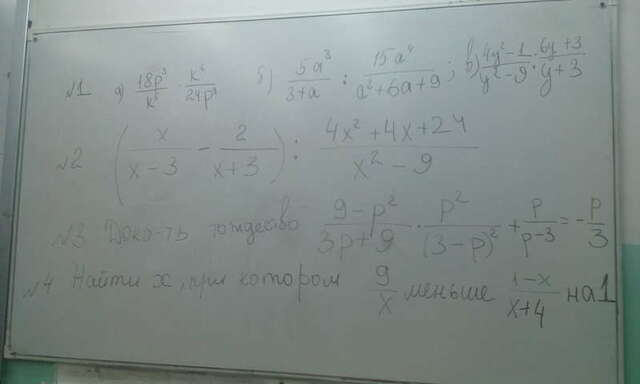 №1 а) 18p³/k⁵ · k⁶/24p⁹ б) 5a³/(3+a) : 15a⁴/(a²+6a+9); в) (4y²-1)/(y²-9) : (6y+3)/(y+3)
№2 (x/(x-3) - 2/(x+3)) : (4x²+4x+24)/(x²-9)
№3 Док-ть тождество (9-p²)/(3p+9) · p²/(3-p)² + p/(p-3) = -p/3
№4 Найти x, при котором 9/x меньше (1-x)/(x+4) на 1